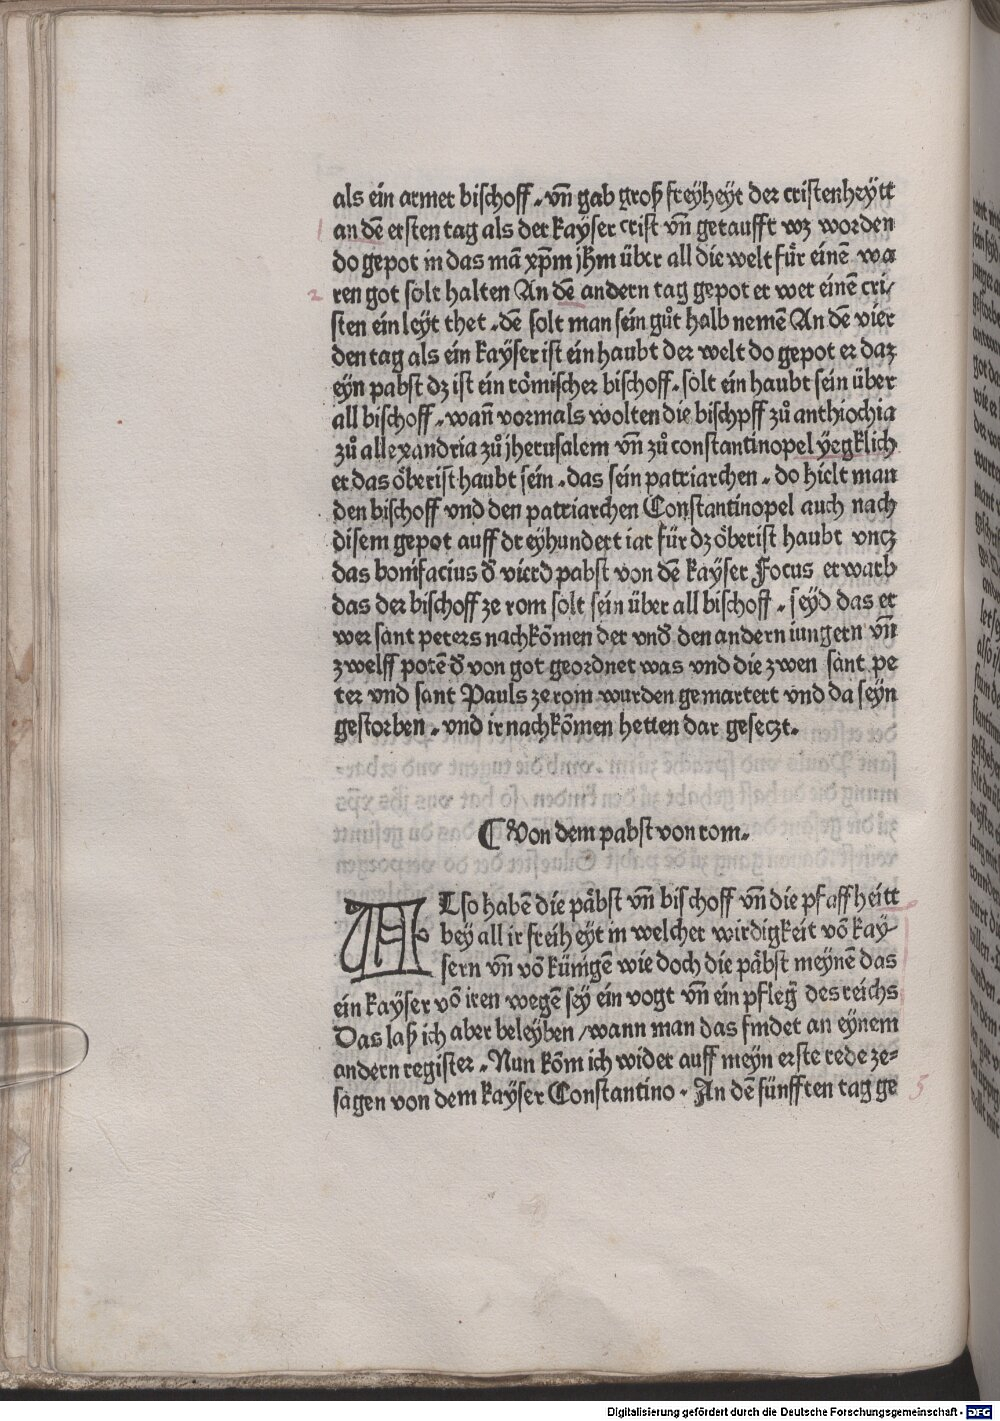 als ein armer bischoff. vñ gab groß freÿheÿt der cristenheÿtt
1 an dē ersten tag als der kaÿser crist vñ getaufft wz worden
do gepot in das mā xp̄m jh̄m über all die welt für einē wa
2 ren got solt halten An dē andern tag gepot er wer einē cri/
sten ein leÿt thet. dē solt man sein gůt halb nemē An dē vier
den tag als ein kaÿser ist ein haubt der welt do gepot er daz
eÿn pabst dz ist ein römischer bischoff. solt ein haubt sein über
all bischoff. wañ vormals wolten die bischpff zů anthiochia
zů allexandria zů jherusalem vñ zů constantinopel ÿegklich
er das öberist haubt sein. das sein patriarchen. do hielt man
den bischoff vnd den patriarchen Constantinopel auch nach
disem gepot auff dreÿhundert iar für dz öberist haubt vncz
das bonifacius d̄ vierd pabst von dē kaÿser Focus erwarb
das der bischoff ze rom solt sein über all bischoff. seÿd das er
wer sant peters nachkōmen der vnd̄ den andern iungern vñ
zwelff potē d̄ von got geordnet was vnd die zwen sant pe
ter vnd sant Pauls ze rom wurden gemartert vnd da seÿn
gestorben. vnd ir nachkōmen hetten dar geseczt.
¶ Von dem pabst von rom.
ALso habē die päbst vñ bischoff vñ die pfaffheitt
beÿ all ir freiheÿt in welcher wirdigkeit vō kaÿ/
sern vñ vō künigē wie doch die päbst meÿnē das
ein kaÿser vō iren wegē seÿ ein vogt vñ ein pfleg̃ des reichs
Das laß ich aber beleÿben / wann man das findet an eÿnem
andern register. Nun kōm ich wider auff meÿn erste rede ze=
sagen von dem kaÿser Constantino. An dē fünfften tag ge 5
Digitalisierung gefördert durch die Deutsche Forschungsgemeinschaft - DFG